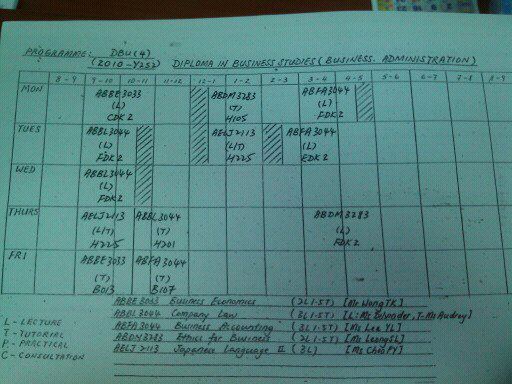 PROGRAMME: DBU(4)
(2010-Y2S2) DIPLOMA IN BUSINESS STUDIES (BUSINESS ADMINISTRATION)
8-9 9-10 10-11 11-12 12-1 1-2 2-3 3-4 4-5 5-6 6-7 7-8 8-9
MON ABBE3033 ABDM3283 ABFA3044
(L) (T) (L)
CDK2 H105 FDK2
TUES ABBL3044 AELJ2113 ABFA3044
(L) (L/T) (L)
FDK2 H225 EDK2
WED ABBL3044
(L)
FDK2
THURS AELJ2113 ABBL3044 ABDM3283
(L/T) (T) (L)
H225 H201 FDK2
FRI ABBE3033 ABFA3044
(T) (T)
B013 B107
ABBE3033 Business Economics (2L1.5T) [Mr Wong TK]
ABBL3044 Company Law (3L1.5T) [L: Ms, T-Ms Audrey]
L - LECTURE ABFA3044 Business Accounting (3L1.5T) [Ms Lee YL]
T - TUTORIAL ABDM3283 Ethics for Business (2L1.5T) [Ms Leong SL]
P - PRACTICAL AELJ2113 Japanese Language II (3L) [Ms Chia PY]
C - CONSULTATION